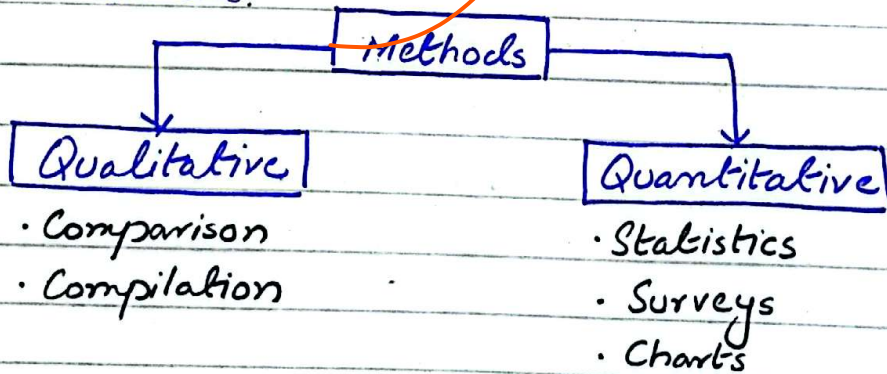 Methods
Qualitative
· Comparison
· Compilation
Quantitative
· Statistics
· Surveys
· Charts